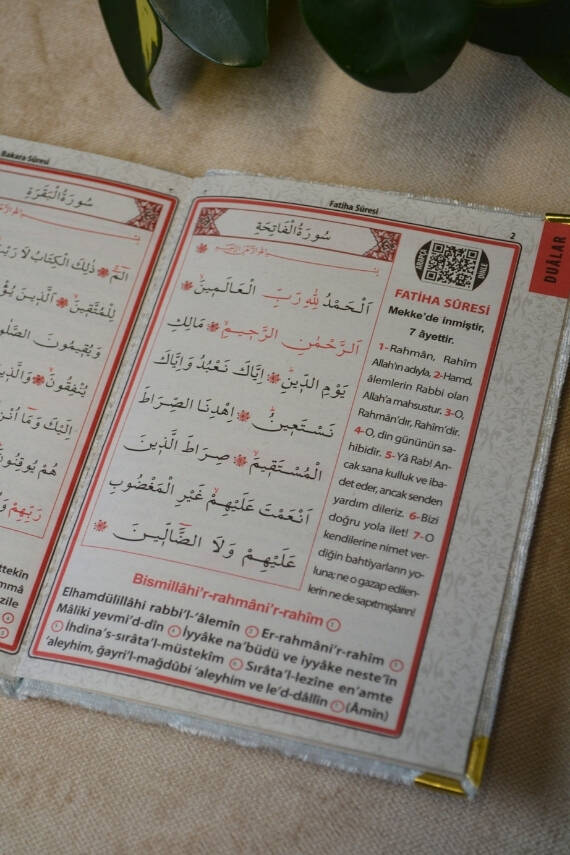 Bakara Sûresi
سُورَةُ الْبَقَرَةِ
الٓمٓ ذٰلِكَ الْكِتَابُ لَا
لِلْمُتَّقِينَ اَلَّذِينَ
وَيُقِيمُونَ
يُنْفِقُونَ
اِلَيْكَ وَمَا
هُمْ يُوقِنُونَ
رَبِّهِمْ
Fatiha Sûresi
2
سُورَةُ الْفَاتِحَةِ
بِسْمِ اللّٰهِ الرَّحْمٰنِ الرَّحِيمِ
اَلْحَمْدُ لِلّٰهِ رَبِّ الْعَالَمِينَ
اَلرَّحْمٰنِ الرَّحِيمِ مَالِكِ
يَوْمِ الدِّينِ اِيَّاكَ نَعْبُدُ وَاِيَّاكَ
نَسْتَعِينُ اِهْدِنَا الصِّرَاطَ
الْمُسْتَقِيمَ صِرَاطَ الَّذِينَ
اَنْعَمْتَ عَلَيْهِمْ غَيْرِ الْمَغْضُوبِ
عَلَيْهِمْ وَلَا الضَّالِّينَ
FATİHA SÛRESİ
Mekke'de inmiştir,
7 âyettir.
1- Rahmân, Rahîm
Allah'ın adıyla, 2-Hamd,
âlemlerin Rabbi olan
Allah'a mahsustur. 3-O,
Rahmân'dır, Rahîm'dir.
4-O, din gününün sa-
hibidir. 5- Yâ Rab! An-
cak sana kulluk ve iba-
det eder, ancak senden
yardım dileriz. 6-Bizi
doğru yola ilet! 7-O
kendilerine nimet ver-
diğin bahtiyarların yo-
luna; ne o gazap edilen-
lerin ne de sapıtmışların!
Bismillâhi'r-rahmâni'r-rahîm
Elhamdülillâhi rabbi'l-'âlemîn Er-rahmâni'r-rahîm
Mâliki yevmi'd-dîn İyyâke na'büdü ve iyyâke neste'în
İhdina's-sırâta'l-müstekîm Sırâta'l-lezîne en'amte
'aleyhim, ğayri'l-mağdûbi 'aleyhim ve le'd-dâllîn (Âmîn)
DUÂLAR